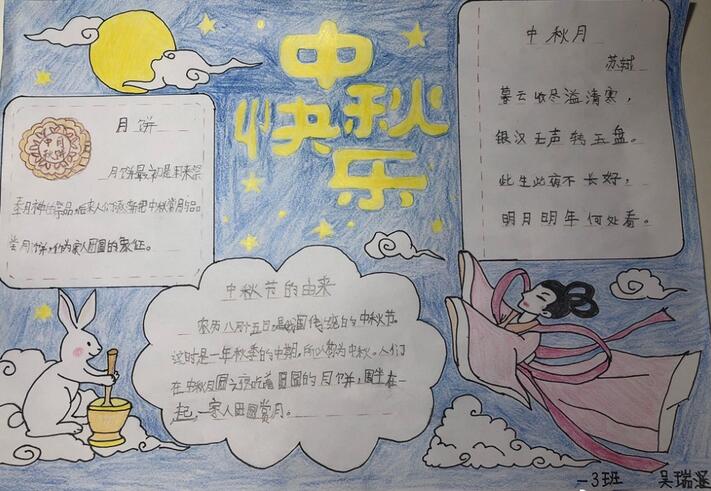 中秋
快乐
月饼
中月
秋饼
月饼最初是用来祭
奉月神的祭品,后来人们逐渐把中秋赏月与品
尝月饼,作为家人团圆的象征。
中秋月
苏轼
暮云收尽溢清寒,
银汉无声转玉盘。
此生此夜不长好,
明月明年何处看。
中秋节的由来
农历八月十五日,是我国传统的中秋节。
这时是一年秋季的中期,所以称为中秋。人们
在中秋月圆之夜吃着圆圆的月饼,围坐在一
起,一家人团圆赏月。
一3班 吴瑞涵